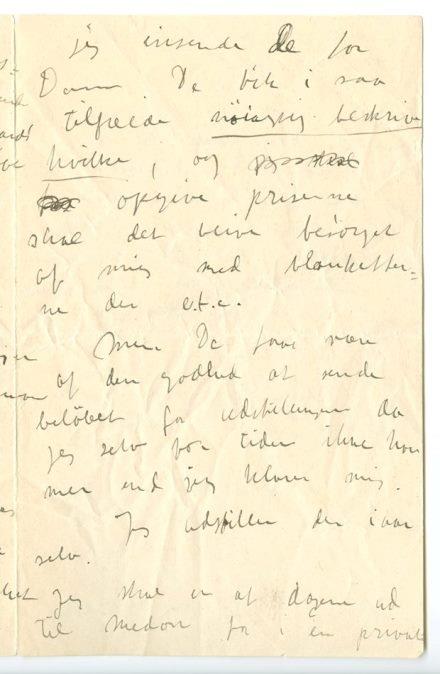 jeg insende De for
Dem. De bik i saa
tilfælde nöiagtig beskrive
hvilke, og jeg skal
opgive priserne
skal det blive besörget
af mig med blanketter=
ne der e.t.c.
Men De faar være
af den godhed at sende
belöbet for udstillingen da
jeg selv for tiden ikke har
mer end jeg klarer mig.
Jeg udstiller der iaar
selv.
Jeg skal en af dagene ud
til Medon for i en privat